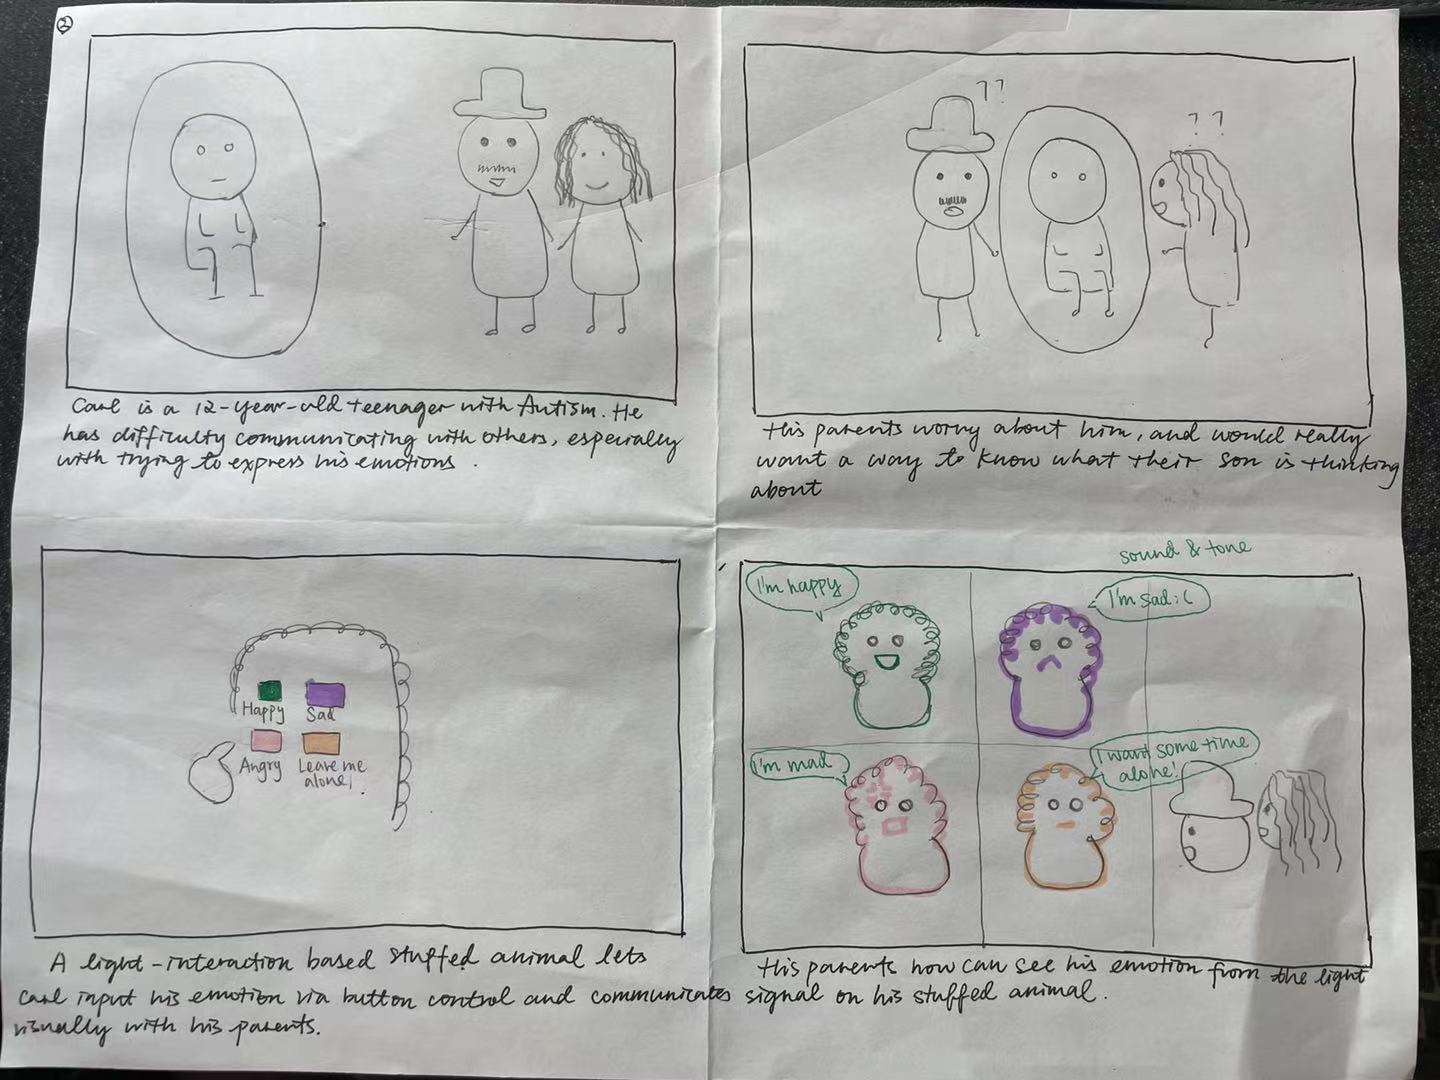 ②
Carl is a 12-year-old teenager with Autism. He
has difficulty communicating with others, especially
with trying to express his emotions.
??
??
His parents worry about him, and would really
want a way to know what their son is thinking
about
Happy
Sad
Angry
Leave me
alone!
A light-interaction based stuffed animal lets
Carl input his emotion via button control and communicates
visually with his parents.
sound & tone
I'm happy
I'm sad :(
I'm mad
I want some time
alone!
His parents now can see his emotion from the light
signal on his stuffed animal.